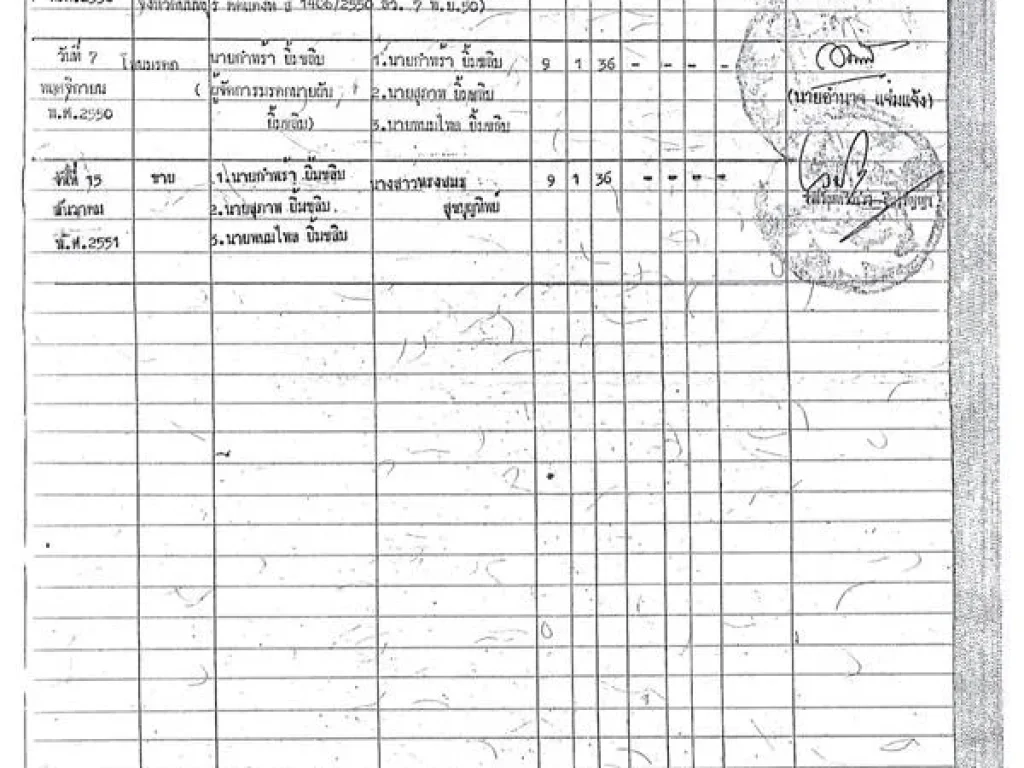 1406/2550 ลว. 7 พ.ย.50)
วันที่ 7 โอนมรดก นายกำพร้า ยิ้มขลิบ 1.นายกำพร้า ยิ้มขลิบ 9 1 36 - - - -
พฤศจิกายน ( ผู้จัดการมรดกนาย 2.นายสุภาพ ยิ้มขลิบ (นายอำนาจ แจ่มแจ้ง)
พ.ศ.2550 ยิ้มขลิบ) 3.นายพนมไพล ยิ้มขลิบ
วันที่ 15 ขาย 1.นายกำพร้า ยิ้มขลิบ นางสาว 9 1 36 - - - -
ธันวาคม 2.นายสุภาพ ยิ้มขลิบ สุขบุญทิพย์
พ.ศ.2551 3.นายพนมไพล ยิ้มขลิบ